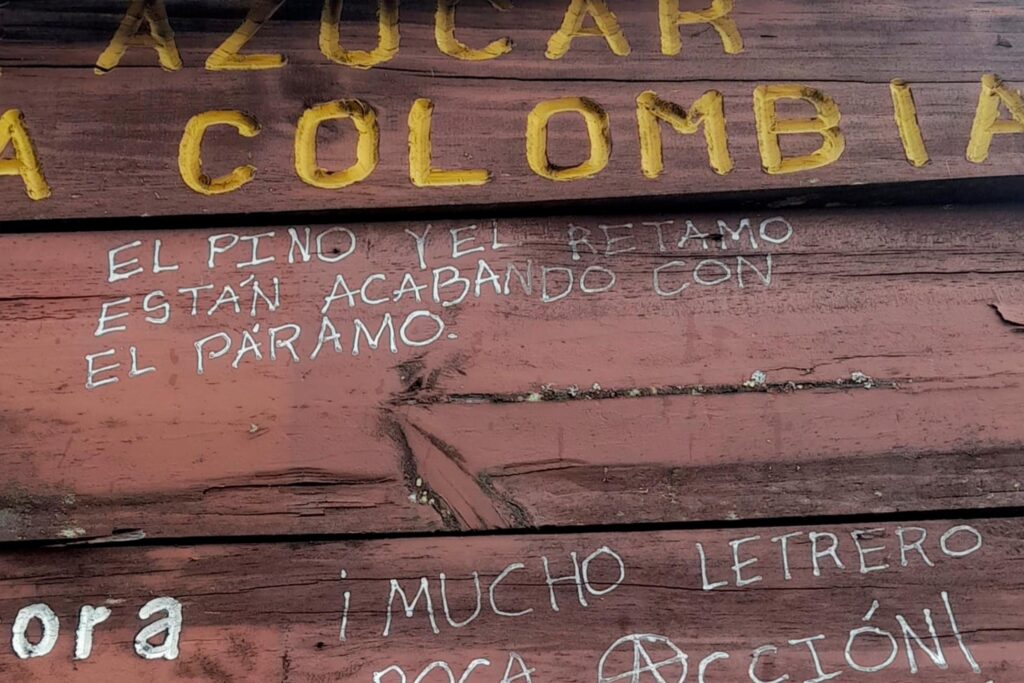 AZÚCAR
A COLOMBIA
EL PINO Y EL RETAMO
ESTÁN ACABANDO CON
EL PÁRAMO.
ora
¡MUCHO LETRERO
POCA ACCIÓN!